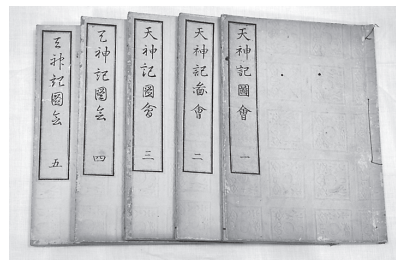 天神記圖會 一
天神記啚會 二
天神記圖會 三
天神記圖会 四
天神記圖会 五